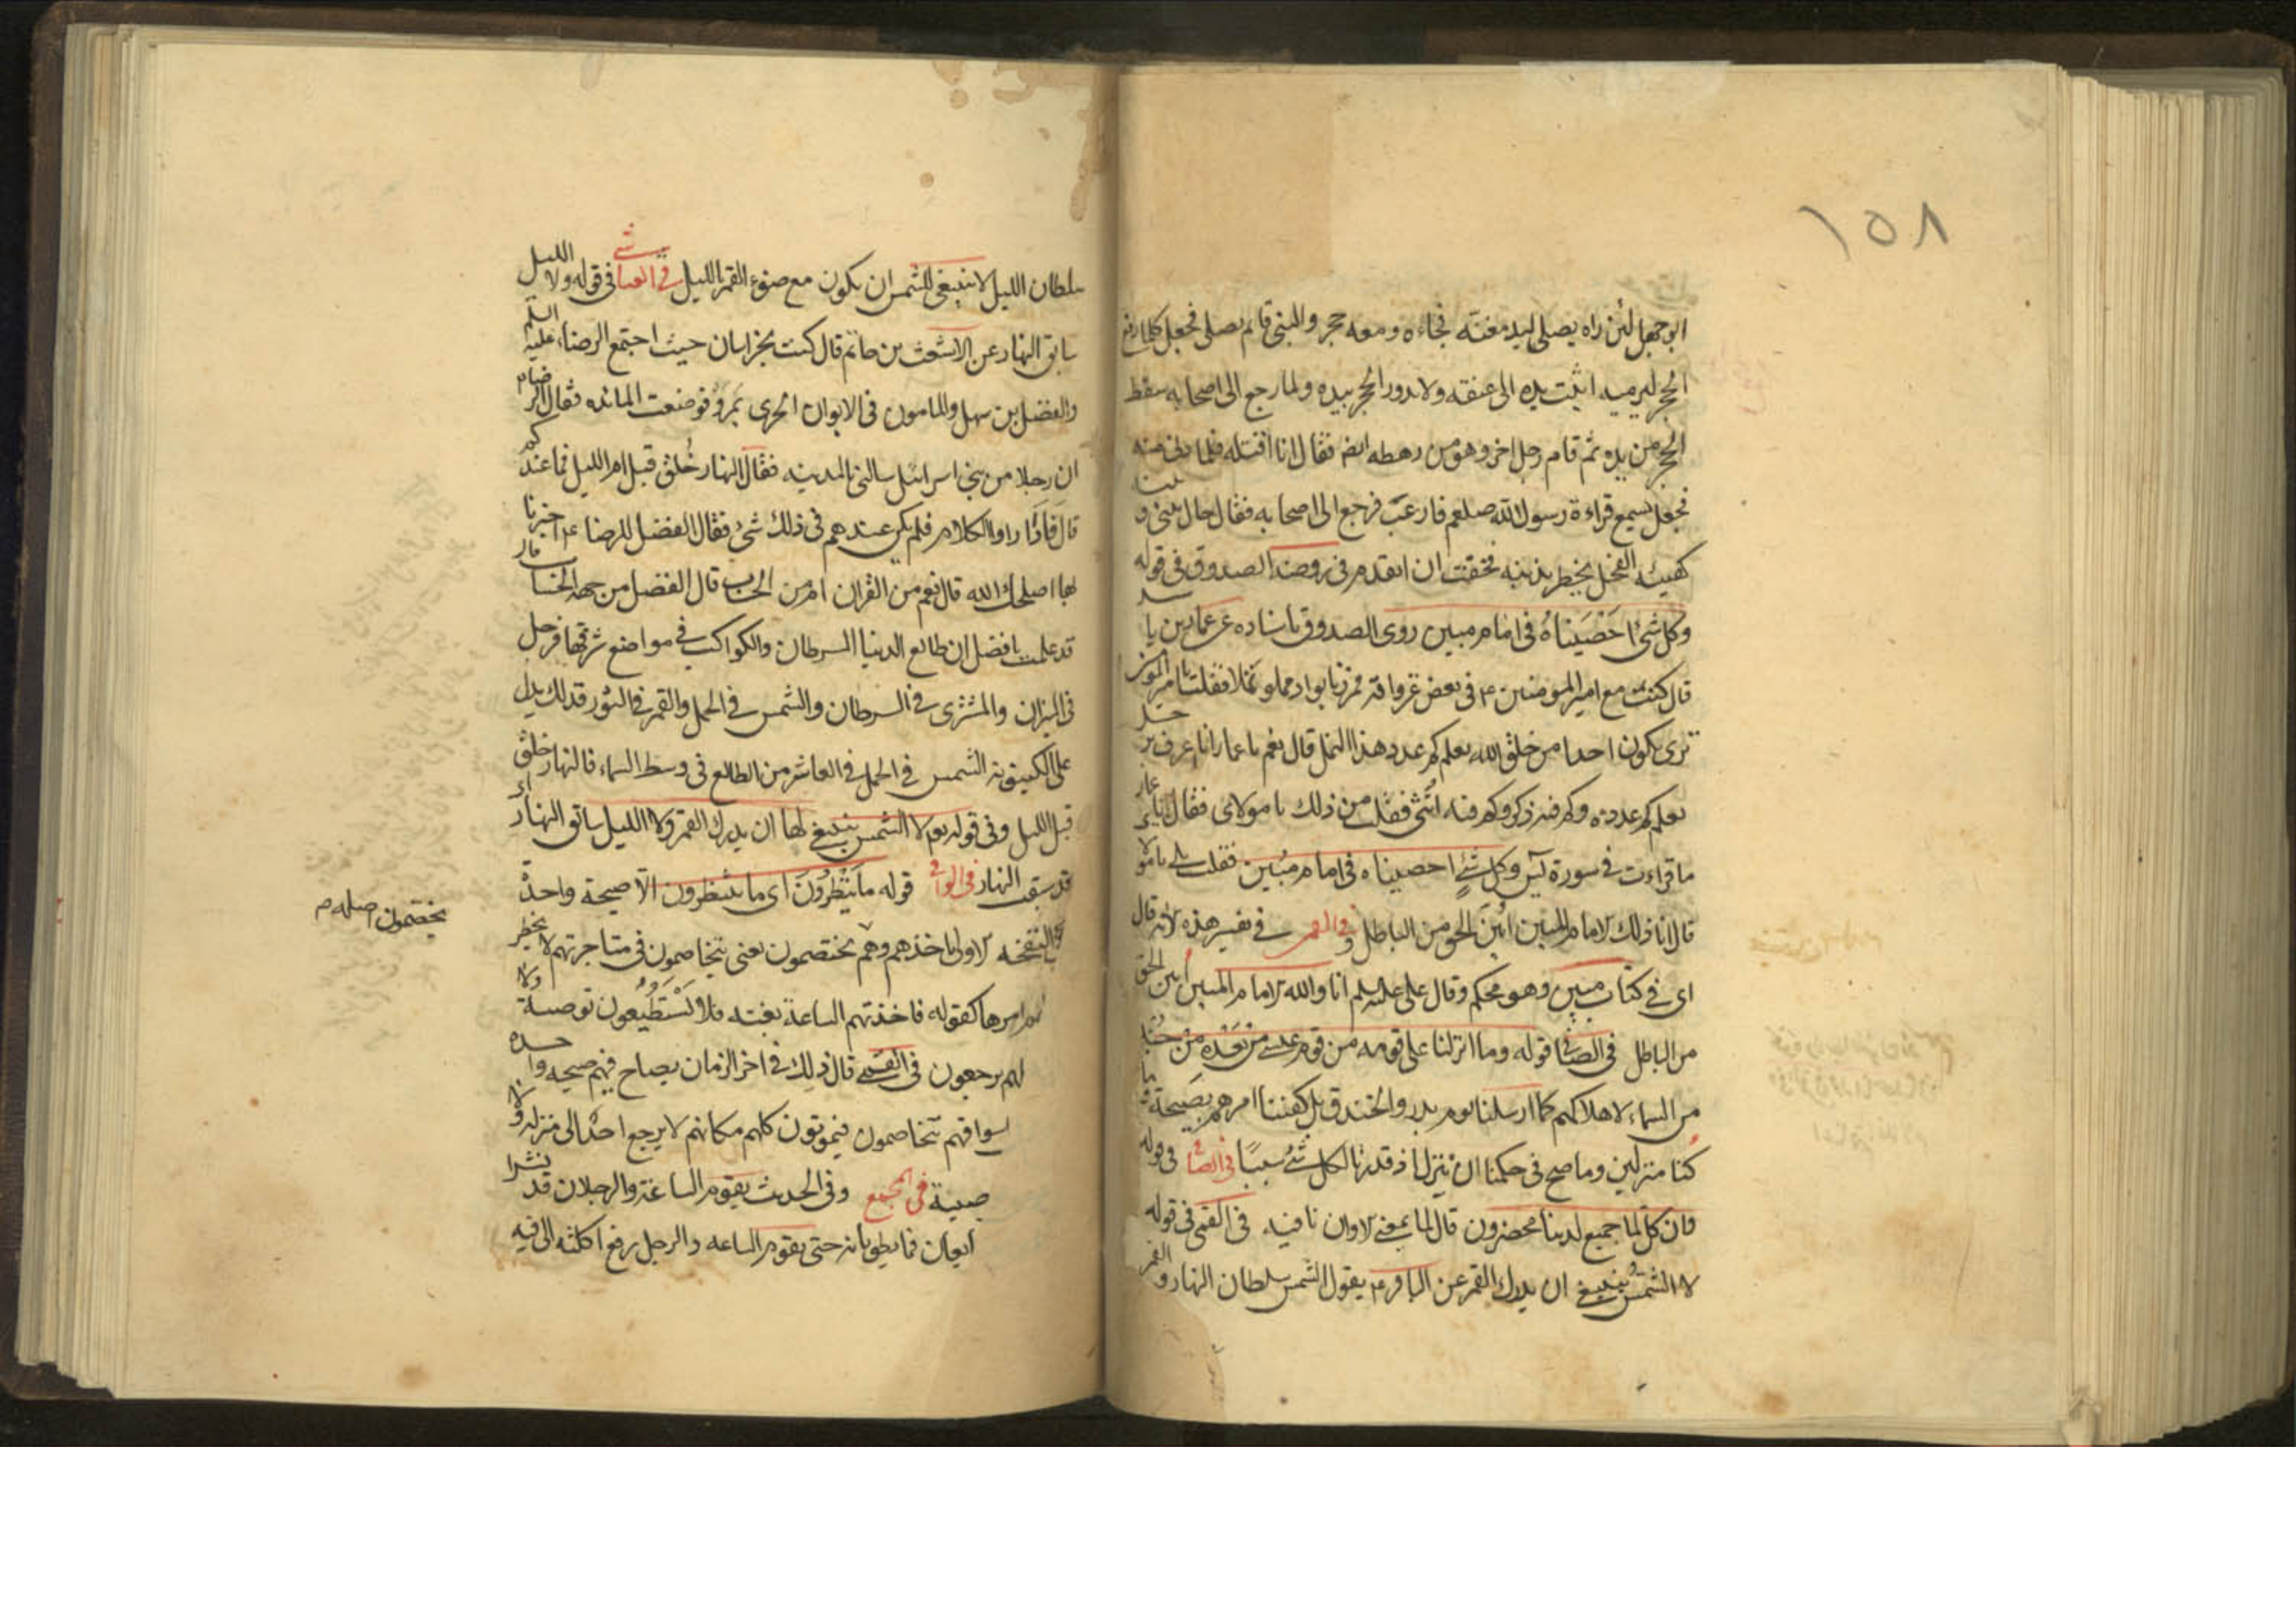 ١٥٨
ابوجهل لئن راه يصلى ليدمغنه فجاءه ومعه حجر والنبى قائم يصلى فجعل كلما رفع
الحجر ليرميه اثبت يده الى عنقه ولا يدور الحجر بيده ولما رجع الى اصحابه سقط
الحجر من يده ثم قام رجل اخر وهو من رهطه ايضا فقال انا اقتله فلما دنى منه
فجعل يسمع قراءة رسول الله صلعم فارعب فرجع الى اصحابه فقال حال بينى و بينه
كهيئة الفحل يخطر بذنبه فخفت ان اتقدم فى روضة الصدوق فى قوله
وكل شئ احصيناه فى امام مبين روى الصدوق باسناده عن عمار بن ياسر
قال كنت مع امير المومنين ٤ فى بعض غزواته فمررنا بواد مملو نملا فقلت يا امير المومنين
ترى يكون احدا من خلق الله يعلم كم عدد هذا النمل قال نعم يا عمار انا اعرف رجلا
يعلم كم عدده وكم فيه ذكر وكم فيه انثى فقلت من ذلك يا مولاى فقال يا عمار
ما قراءت فى سورة يس وكل شئ احصيناه فى امام مبين فقلت بلى يا مولاى
قال انا ذلك الامام المبين ابين الحق من الباطل و فى القمى فى تفسير هذه الاية قال
اى فى كتاب مبين وهو محكم وقال على عليه السلم انا والله الامام المبين ابين الحق
من الباطل فى الصافى قوله وما انزلنا على قومه من قوم عيسى من بعده من جند
من السماء لاهلاكهم كما ارسلنا يوم بدر والخندق بل كفينا امرهم بصيحة وما
كنا منزلين وما صح فى حكمنا ان ننزل اذ قدرنا لكل شئ سببا فى الصافى فى قوله
وان كل لما جميع لدينا محضرون قال لما بمعنى الا وان نافيه فى القمى فى قوله
لا الشمس ينبغى ان يدرك القمر عن الباقر ٤ يقول الشمس سلطان النهار و القمر
سلطان الليل لا ينبغى للشمس ان يكون مع ضوء القمر بالليل فى العياشى فى قوله ولا الليل
سابق النهار عن الاشعث بن حاتم قال كنت بخراسان حيث اجتمع الرضا عليه السلم
والفضل بن سهل والمامون فى الايوان الحرى بمرو فوضعت المائده فقال الرضا ٤
ان رجلا من بنى اسرائيل سالنى بالمدينه فقال النهار خلق قبل ام الليل فما عندكم
قال فاداروا الكلام فلم يكن عندهم فى ذلك شئ فقال الفضل للرضا ٤ اخبرنا
بها اصلحك الله قال نعم من القران ام من الحساب قال الفضل من جهة الحساب قال
قد علمت يا فضل ان طالع الدنيا السرطان والكواكب فى مواضع شرفها فزحل
فى الميزان والمشترى فى السرطان والشمس فى الحمل والقمر فى الثور فذلك يدل
على كينونة الشمس فى الحمل فى العاشر من الطالع فى وسط السماء فالنهار خلق
قبل الليل وفى قوله تع لا الشمس ينبغى لها ان يدرك القمر ولا الليل سابق النهار اى
قد سبقه النهار فى الوافى قوله ما ينظرون اى ما ينتظرون الا صيحة واحدة
النفخة الاولى تاخذهم وهم يختصمون يعنى يتخاصمون فى متاجرتهم لا يخطر
امرها كقوله فاخذتهم الساعة بغتة فلا يستطيعون توصية ولا
لهم يرجعون فى القمى قال ذلك فى اخر الزمان يصاح فيهم صيحه واحده
اسواقهم يتخاصمون فيموتون كلهم مكانهم لا يرجع احد الى منزله ولا
صية فى المجمع وفى الحديث يقوم الساعة والرجلان قد نشرا
فما يطويانه حتى يقوم الساعه والرجل رفع اكلته الى فيه
يختصمون اصله م